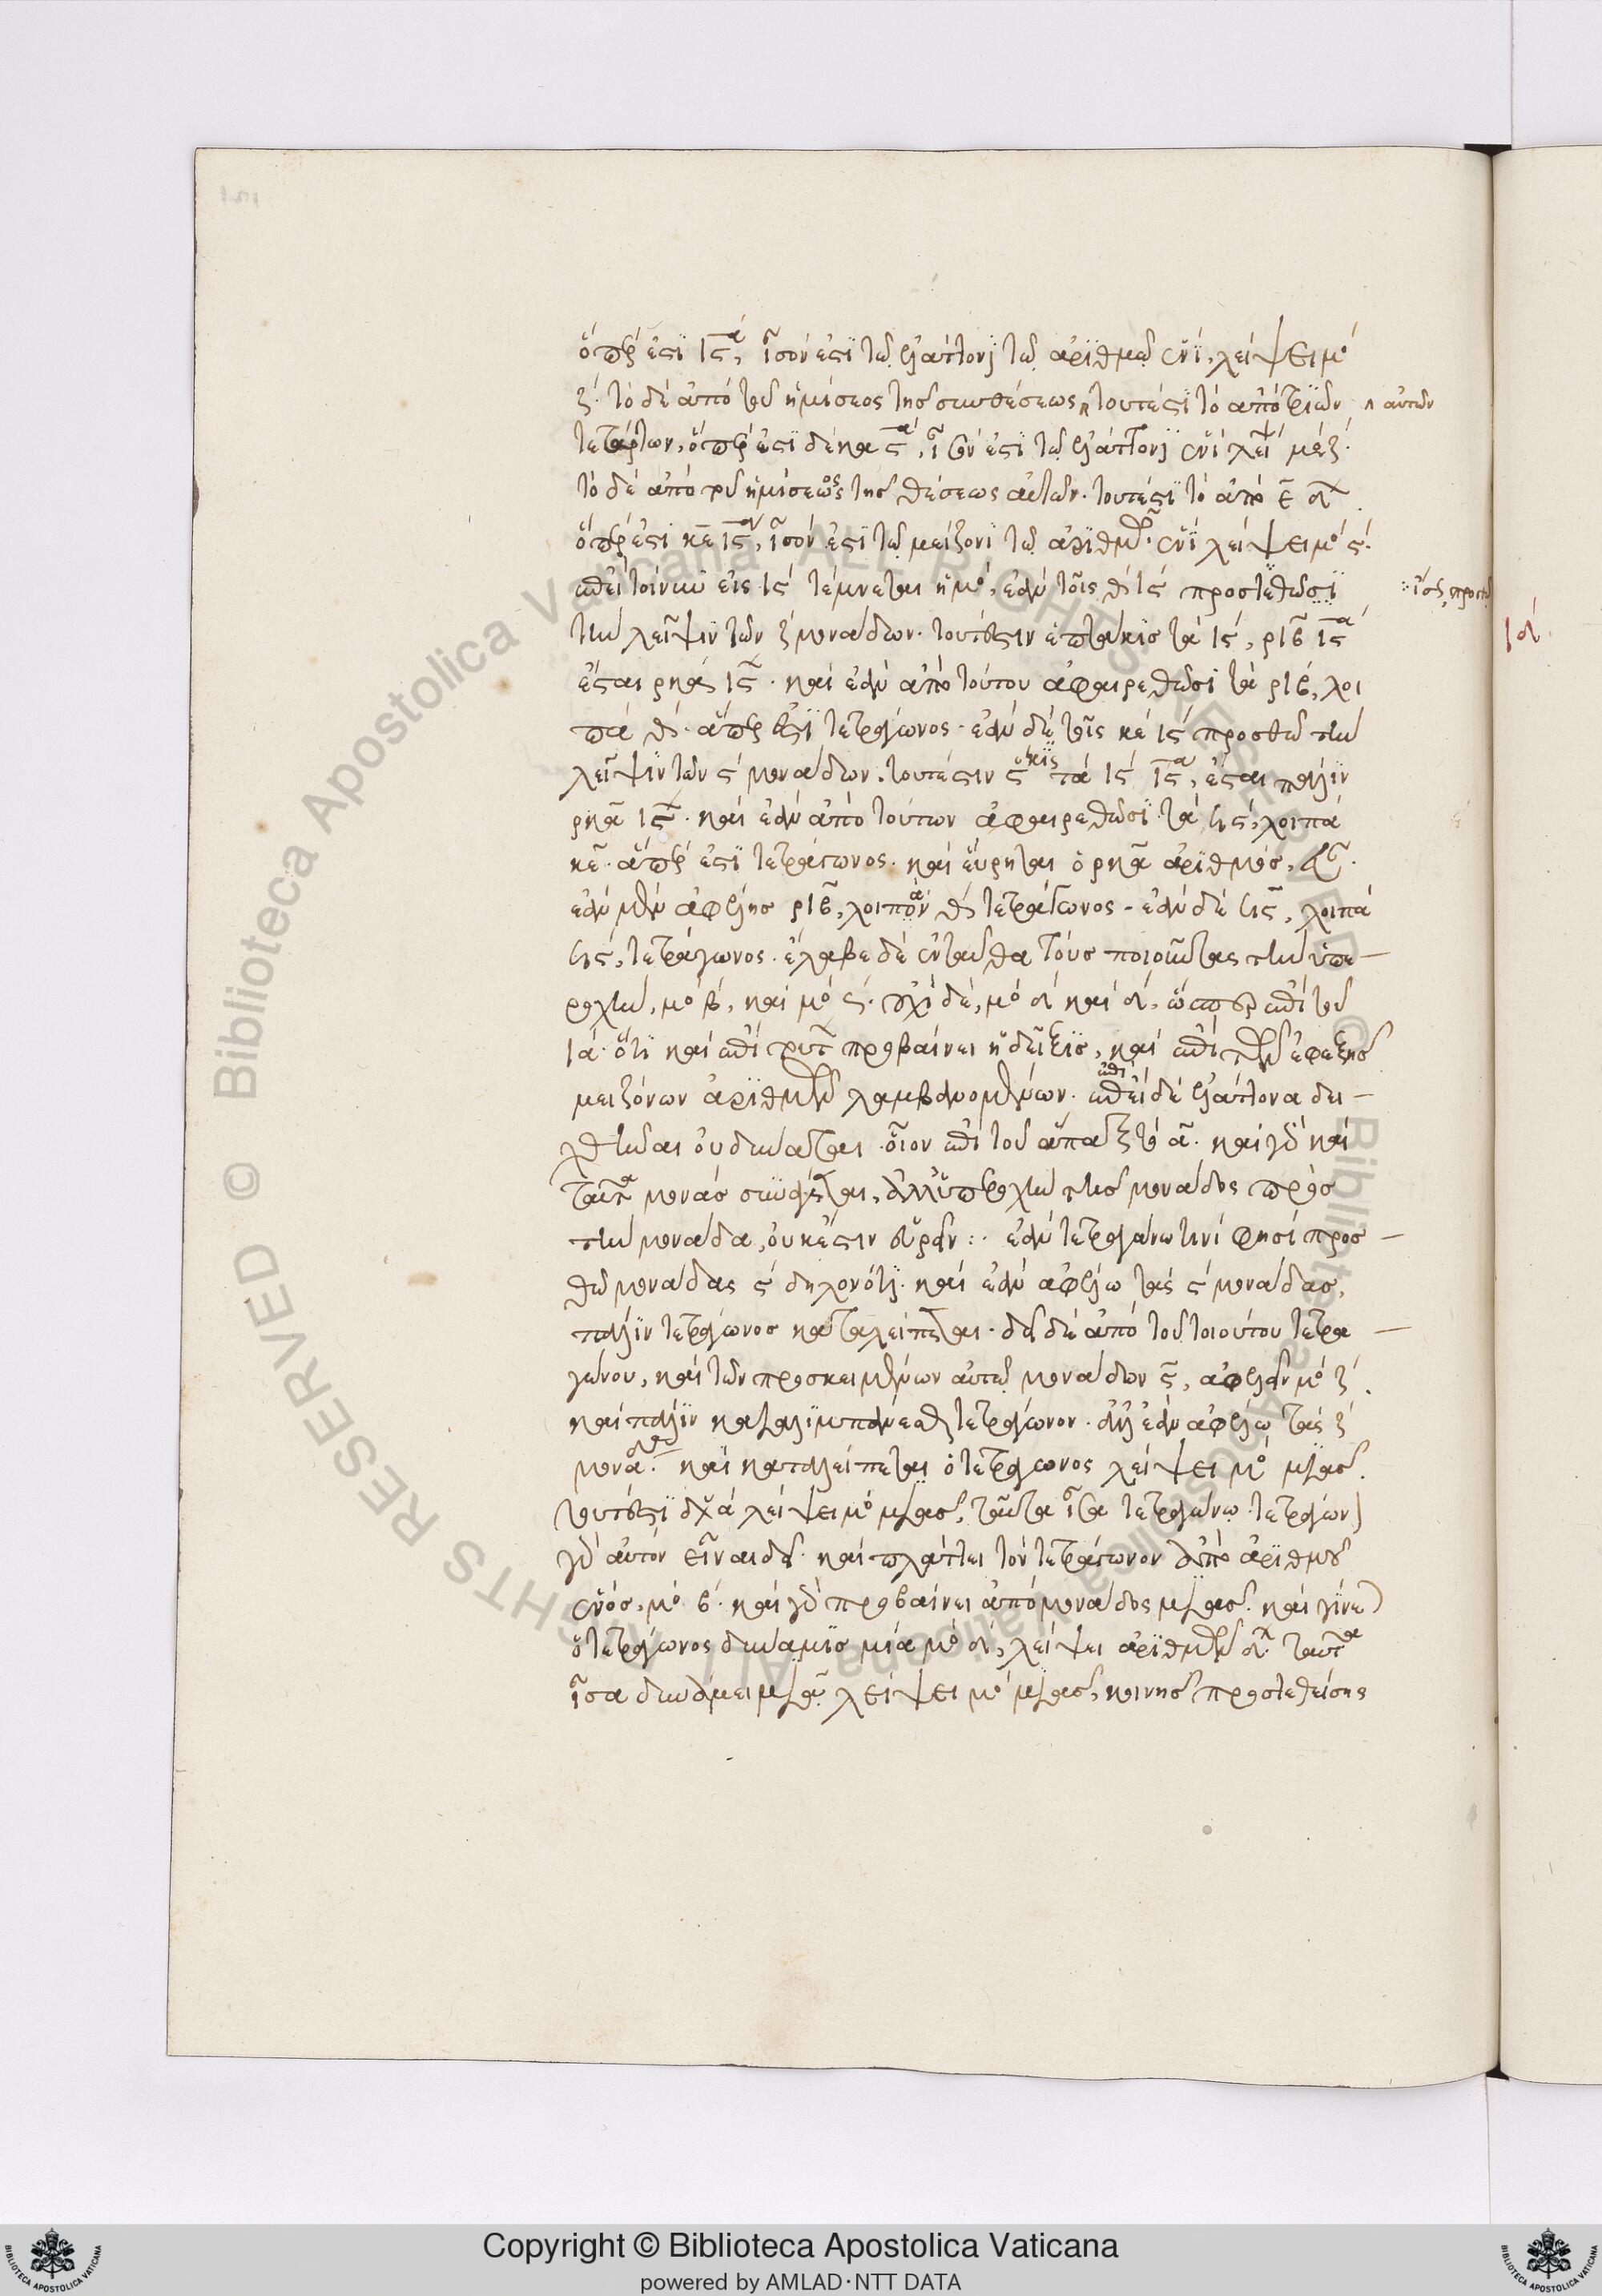 ὅπερ ἐστὶ ιϛα, ἴσον ἐστὶ τῷ ἐλάττονι τῷ ἀριθμῷ ἑνὶ, λείψει μο
ζ. τὸ δὲ ἀπὸ τοῦ ἡμίσεος τῆς συνθέσεως τουτέστι τὸ ἀπὸ τριῶν
αὐτῶν
τετάρτων, ὅπερ ἐστὶ θ ϛα, ἴσον ἐστὶ τῷ ἐλάττονι ἑνὶ λείψ μο ζ.
τὸ δὲ ἀπὸ τοῦ ἡμίσεως τῆς θέσεως αὐτῶν. τουτέστι τὸ ἀπὸ ε δ
ὅπερ ἐστὶ κε ιϛ, ἴσον ἐστὶ τῷ μείζονι τῷ ἀριθμῷ ἑνὶ λείψει μο ϛ.
ἐπεὶ τοίνυν εἰς ιϛ τέμνεται ἡ μο, ἐὰν τοῖς θ ιϛ προστεθῶσι
τὴν λεῖψιν τῶν ζ μονάδων. τουτέστιν ἑπτάκις τὰ ιϛ, ριβ ιϛα
ἔσται ρκα ιϛ. καὶ ἐὰν ἀπὸ τούτου ἀφαιρεθῶσι τὰ ριβ, λοι
πὰ θ. ἅπερ ἐστὶ τετράγωνος. ἐὰν δὲ τοῖς κε ιϛ προσθῶ τὴν
λεῖψιν τῶν ϛ μονάδων. τουτέστιν ϛκις τὰ ιϛ ιϛα, ἔσται πάλιν
ρκα ιϛ. καὶ ἐὰν ἀπὸ τούτων ἀφαιρεθῶσι τὰ ϟϛ, λοιπὰ
κε. ἅπερ ἐστὶ τετράγωνος. καὶ εὕρηται ὁ ρκα ἀριθμὸς,
ἐὰν μὲν ἀφέλῃς ριβ, λοιπὸν θ τετράγωνος. ἐὰν δὲ ϟϛ, λοιπὰ
ϟϛ, τετράγωνος. ἔλαβε δὲ ἐνταῦθα τοὺς ποιοῦντας τὴν ὑπε
ροχὴν, μο β, καὶ μο ϛ. οὐχὶ δὲ, μο δ καὶ δ, ὥσπερ ἐπὶ τοῦ
ια. ὅτι καὶ ἐπὶ τούτ προβαίνει ἡ δεῖξις, καὶ ἐπὶ τῶν ἐφεξῆς
μειζόνων ἀριθμῶν λαμβανομένων. ἐπεὶ δὲ ἐλάττονα δει
χθῆναι οὐ δύναται. οἷον ἐπὶ τοῦ ἅπαξ τὸ α. καὶ γὰρ καὶ
ταῦτα μονὰς συνάγεται, ἀλλ' ὑπεροχὴν τῆς μονάδος πρὸς
τὴν μονάδα, οὐκ ἔστιν εὑρεῖν :. ἐὰν τετραγώνῳ τινὶ φησὶ προσ
θῶ μονάδας ϛ δηλονότι. καὶ ἐὰν ἀφέλω τὰς ϛ μονάδας,
πάλιν τετράγωνος καταλείπεται. δεῖ δὲ ἀπὸ τοῦ τοιούτου τετρα
γώνου, καὶ τῶν προσκειμένων αὐτῷ μονάδων ϛ, ἀφελεῖν μο ζ
καὶ πάλιν καταλιμπάνεσθαι τετράγωνον. ἀλλ' ἐὰν ἀφέλω τὰς ζ
μονάδας. καὶ καταλείπεται ὁ τετράγωνος λείψει μο μιᾶς.
τουτέστι δυα λείψει μο μιᾶς, ταῦτα ἴσα τετραγώνῳ. τετράγων
γὰρ αὐτὸν εἶναι δεῖ. καὶ πλάττει τὸν τετράγωνον ἀπὸ ἀριθμοῦ
ἑνὸς, μο β. καὶ γὰρ προβαίνει ἀπὸ μονάδος μιᾶς. καὶ γίνε
ὁ τετράγωνος δύναμις μία μο δ, λείψει ἀριθμῶν δ. ταῦτα
ἴσα δυνάμει μιᾷ λείψει μο μιᾶς, κοινῆς προστεθείσης
Copyright © Biblioteca Apostolica Vaticana
powered by AMLAD·NTT DATA